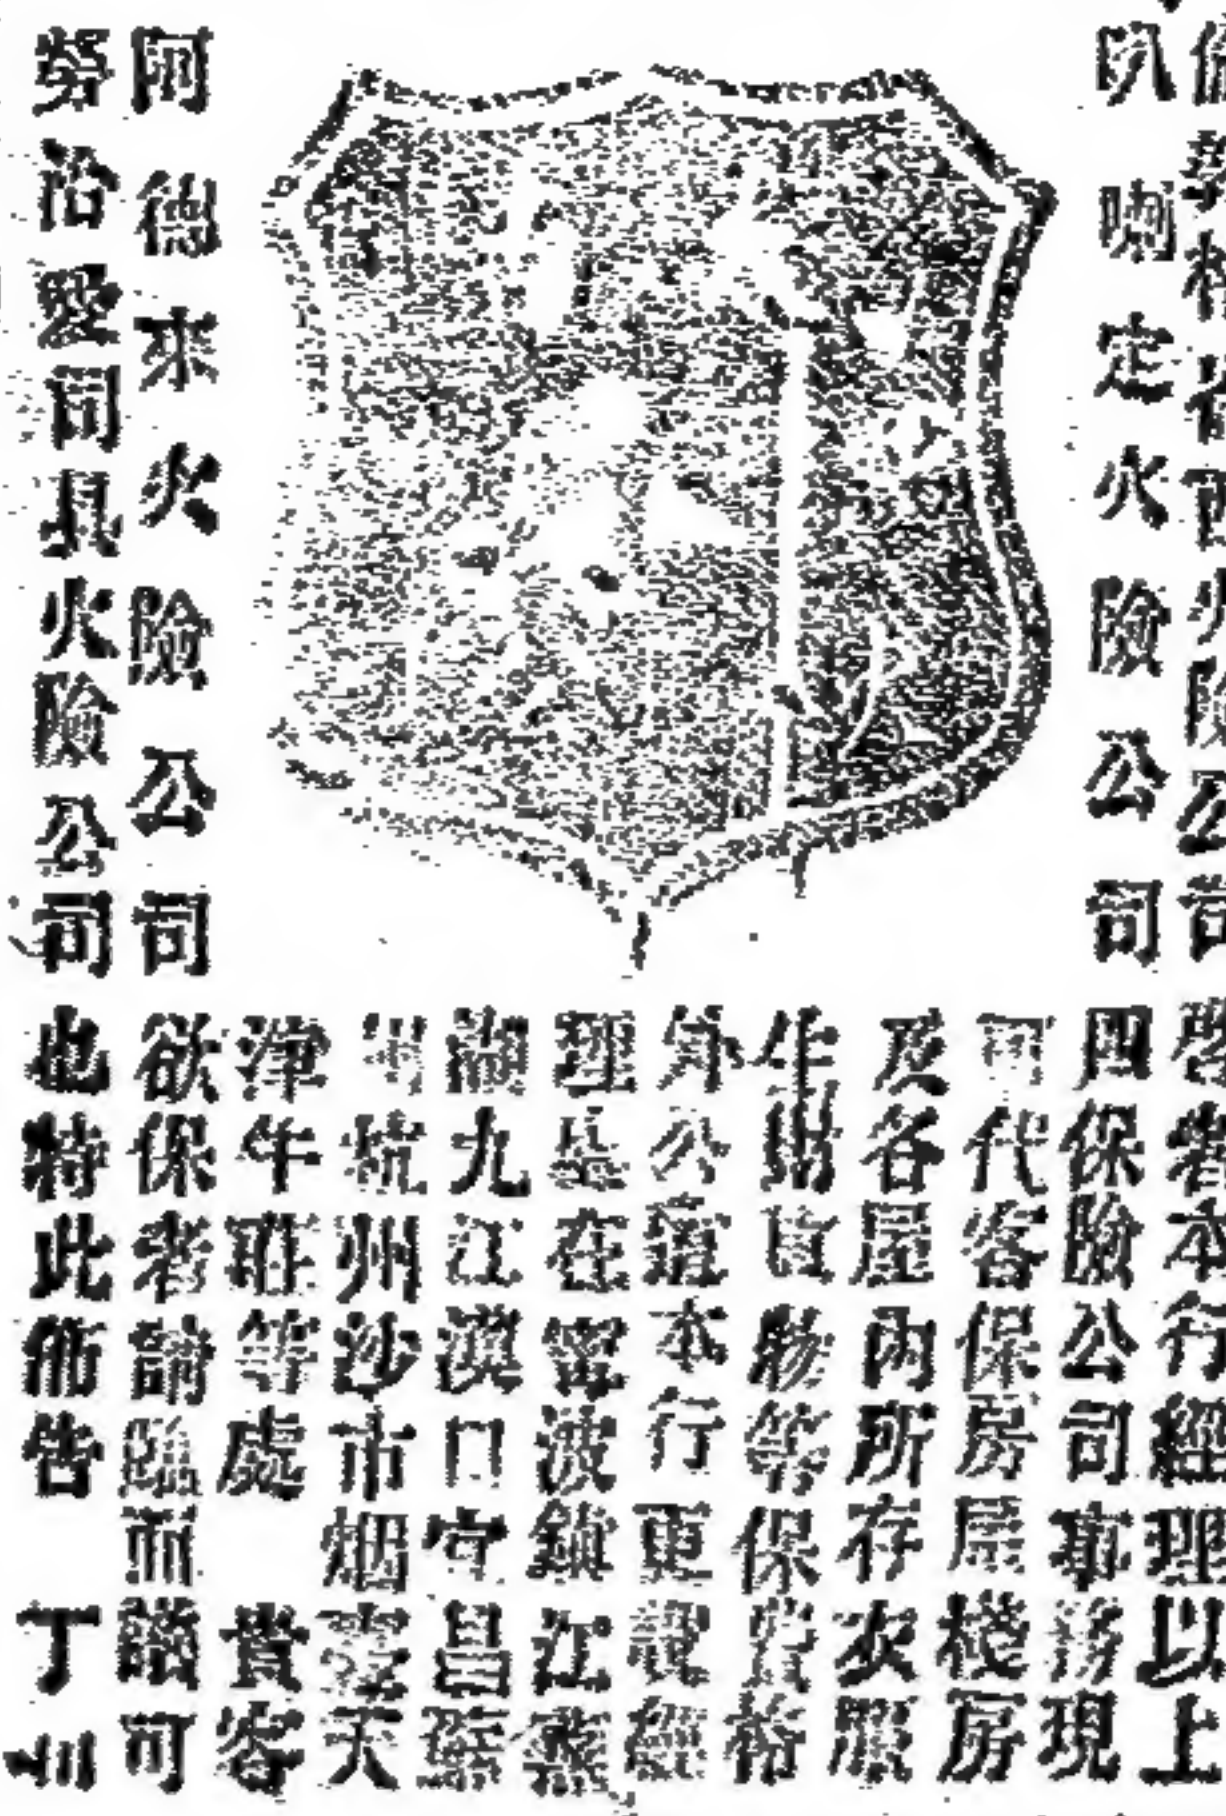 火險公司
叭喇定火險公司
阿德來火險公司
勞洽愛同具火險公司
啓者本行經理以上
四保險公司事務現
可代客保房屋棧房
及各屋內所存衣服
什財貨物等保費格
外公道本行更設經
理處在寧波鎮江蕪
湖九江漢口宜昌蘇
州杭州沙市烟臺天
津牛莊等處 貴客
欲保者請臨面議可
也特此佈告